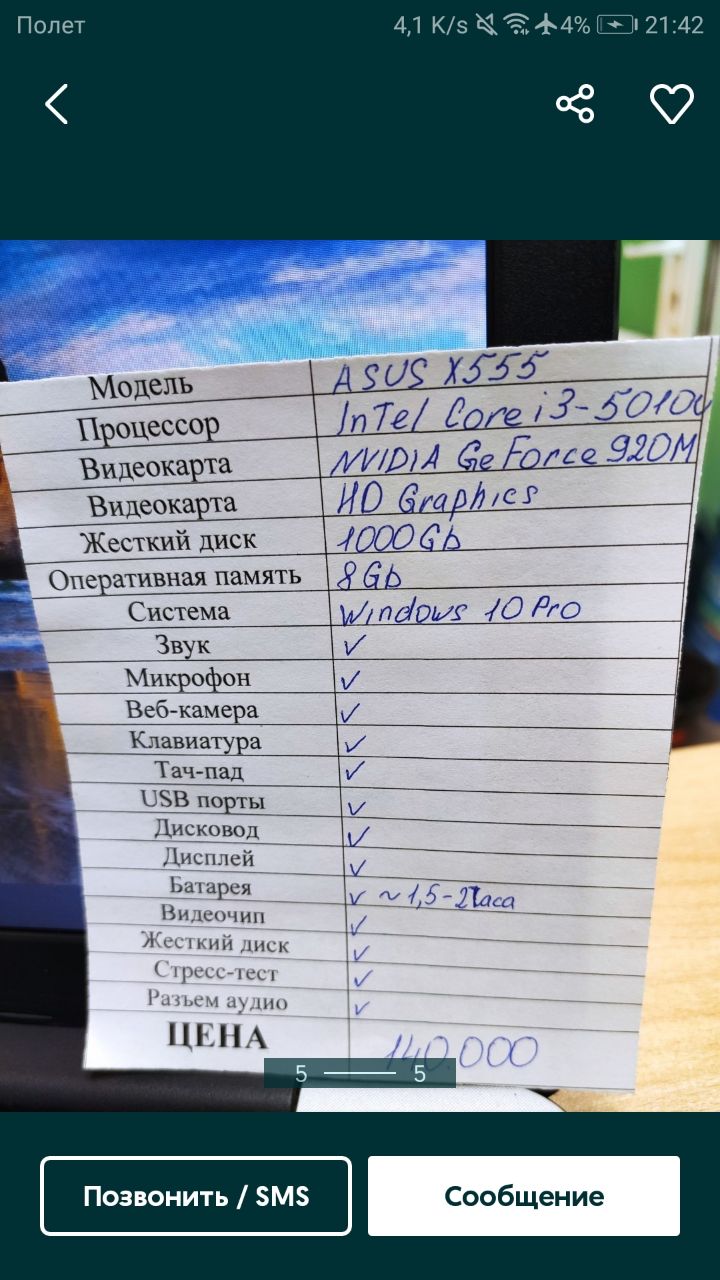 Полет 4,1 K/s 4% 21:42
Модель ASUS X555
Процессор Intel Core i3-5010U
Видеокарта NVIDIA GeForce 920M
Видеокарта HD Graphics
Жесткий диск 1000Gb
Оперативная память 8Gb
Система Windows 10 Pro
Звук ✓
Микрофон ✓
Веб-камера ✓
Клавиатура ✓
Тач-пад ✓
USB порты ✓
Дисковод ✓
Дисплей ✓
Батарея ✓ ~1,5-2часа
Видеочип ✓
Жесткий диск ✓
Стресс-тест ✓
Разъем аудио ✓
ЦЕНА 140.000
5 5
Позвонить / SMS Сообщение